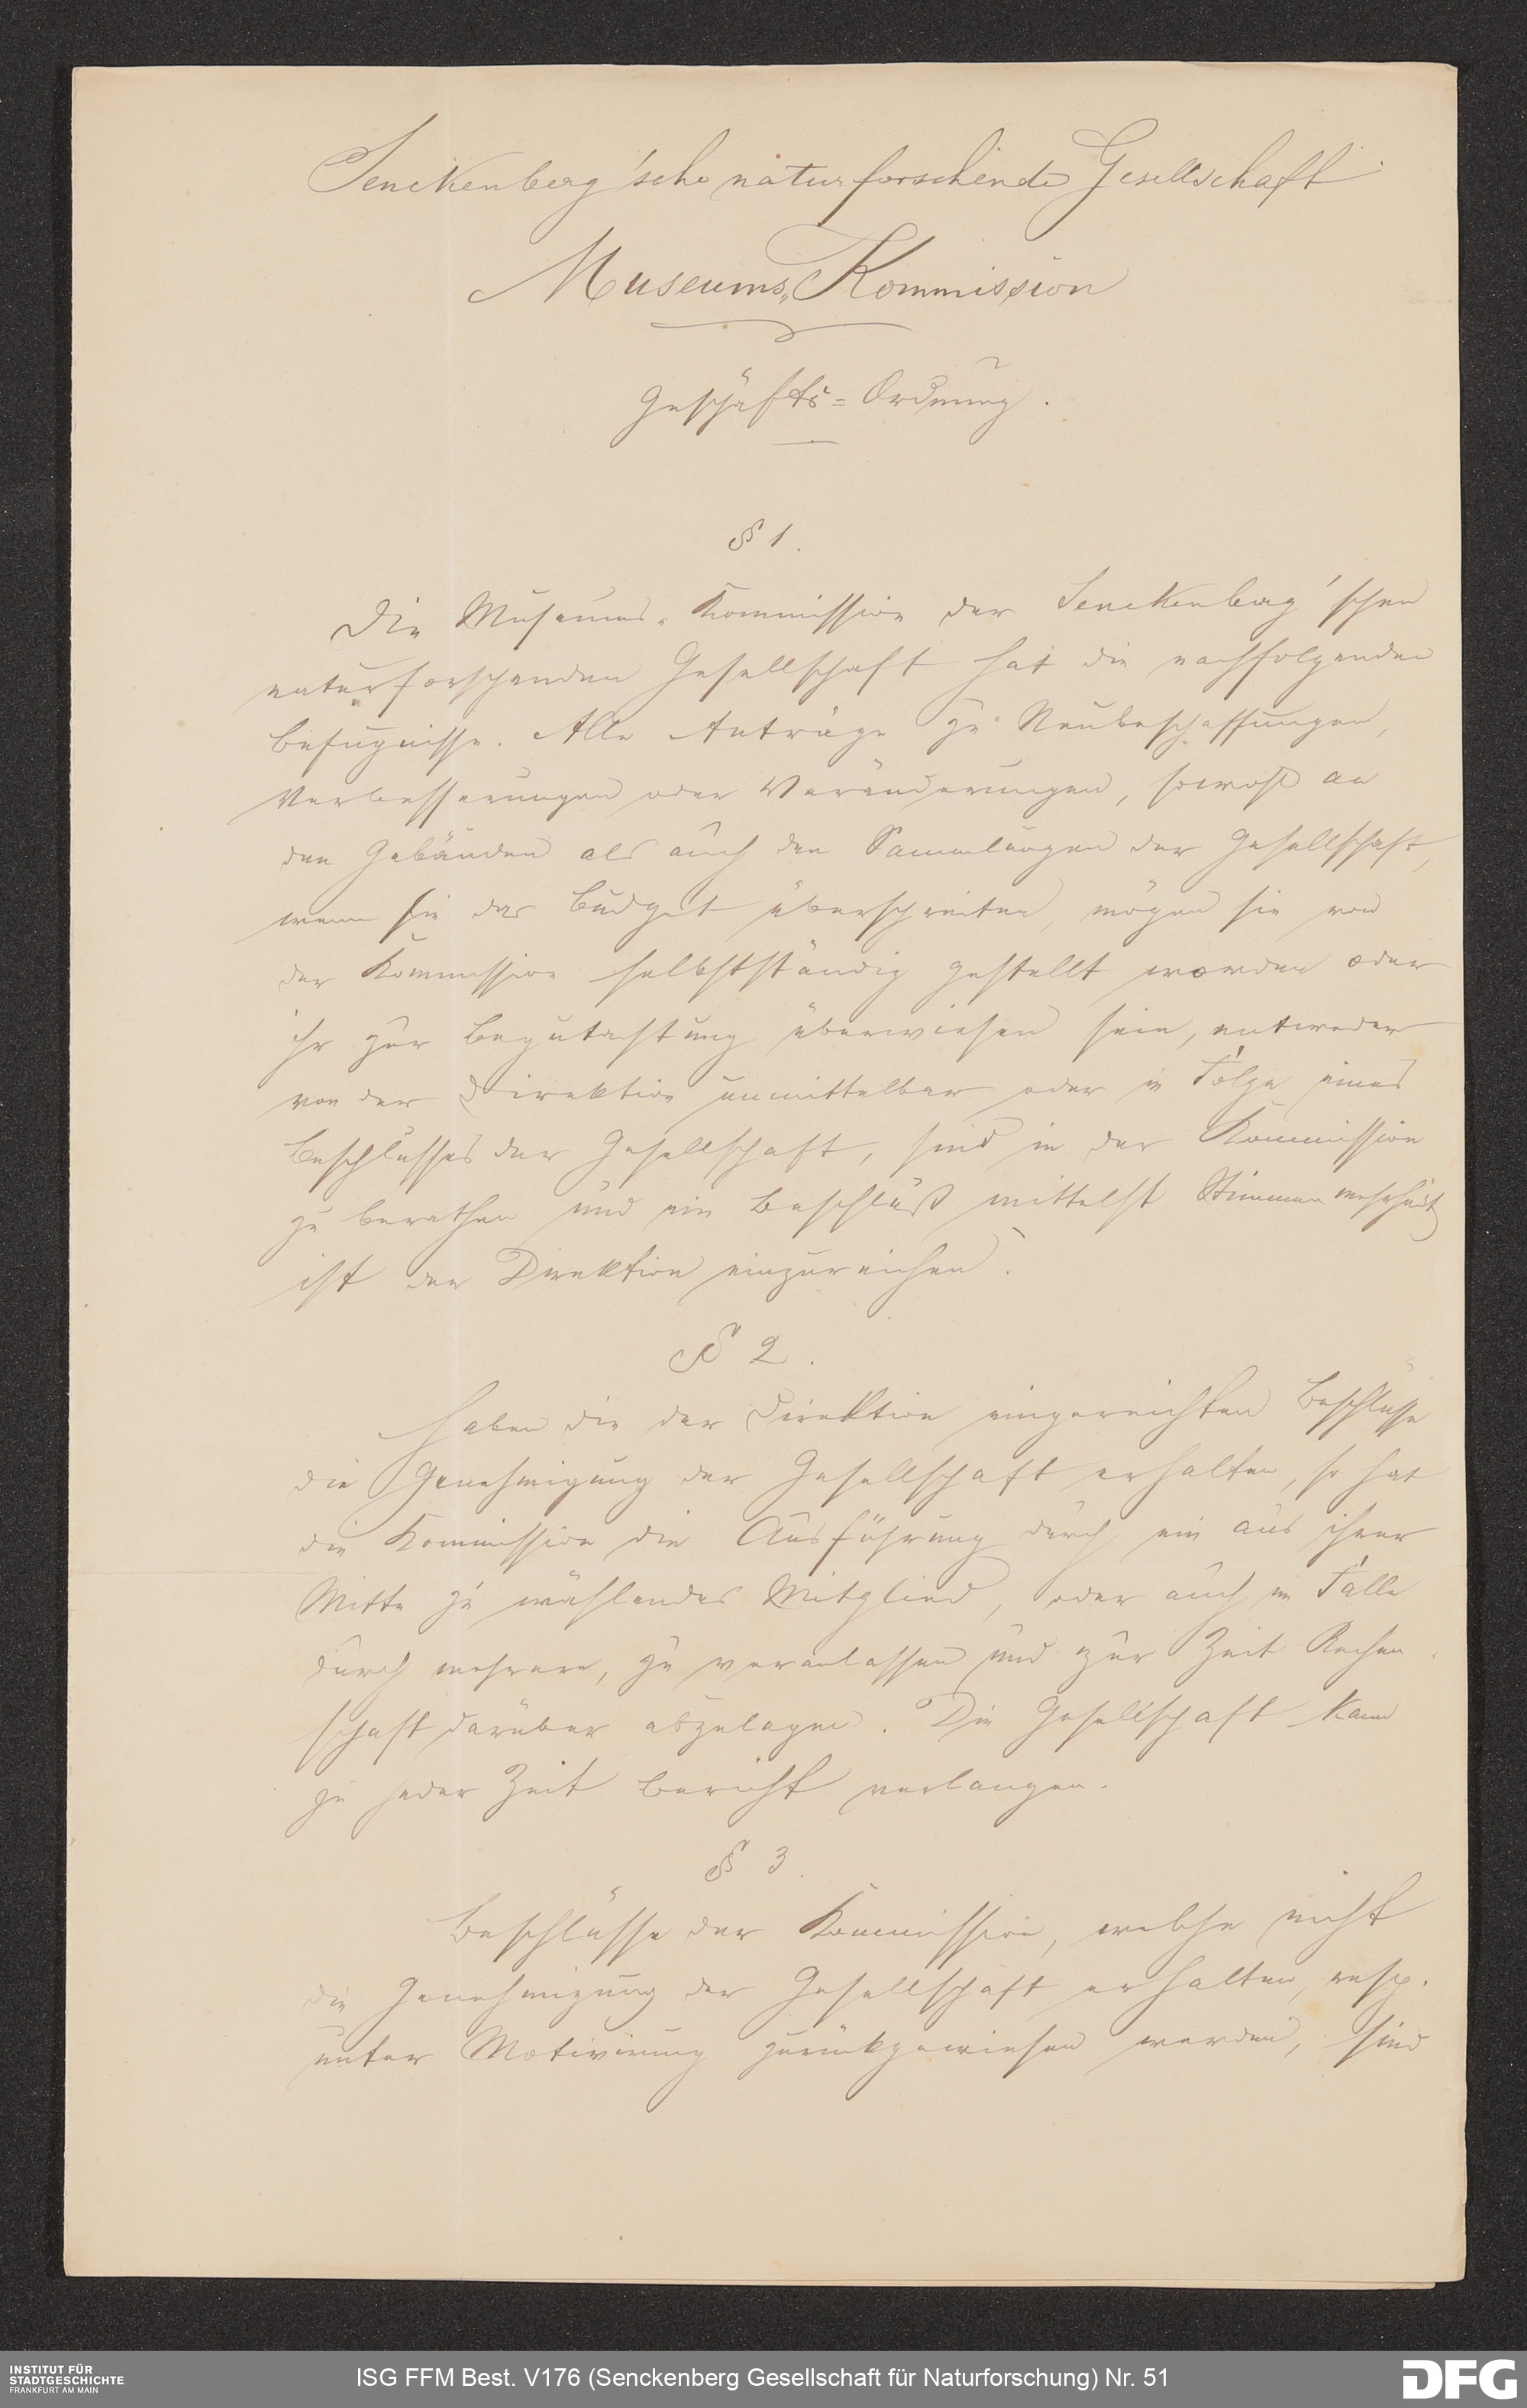 Senckenberg'sche naturforschende Gesellschaft
Museums„Kommission
Geschäfts=Ordnung.
§ 1.
Die Museums-Kommission der Senckenberg'schen
naturforschenden Gesellschaft hat die nachfolgenden
Befugnisse. Alle Anträge zu Neubeschaffungen,
Verbesserungen oder Veränderungen, sowohl an
den Gebäuden als auch den Sammlungen der Gesellschaft,
wenn sie das Budget überschreiten, mögen sie von
der Kommission selbstständig gestellt worden oder
ihr zur Begutachtung überwiesen sein, entweder
von der Direktion unmittelbar oder in Folge eines
Beschlusses der Gesellschaft, sind in der Kommission
zu berathen und ein Beschluß mittelst Stimmenmehrheit
ist der Direktion einzureichen.
§ 2.
Haben die der Direktion eingereichten Beschlüsse
die Genehmigung der Gesellschaft erhalten, so hat
die Kommission die Ausführung durch ein aus ihrer
Mitte zu wählendes Mitglied, oder auch im Falle
durch mehrere, zu veranlassen und zur Zeit Rechen-
schaft darüber abzulegen. Die Gesellschaft kann
zu jeder Zeit Bericht verlangen.
§ 3.
Beschlüsse der Kommission, welche nicht
die Genehmigung der Gesellschaft erhalten, resp.
unter Motivirung zurückgewiesen werden, sind
INSTITUT FÜR
STADTGESCHICHTE
FRANKFURT AM MAIN
ISG FFM Best. V176 (Senckenberg Gesellschaft für Naturforschung) Nr. 51
DFG